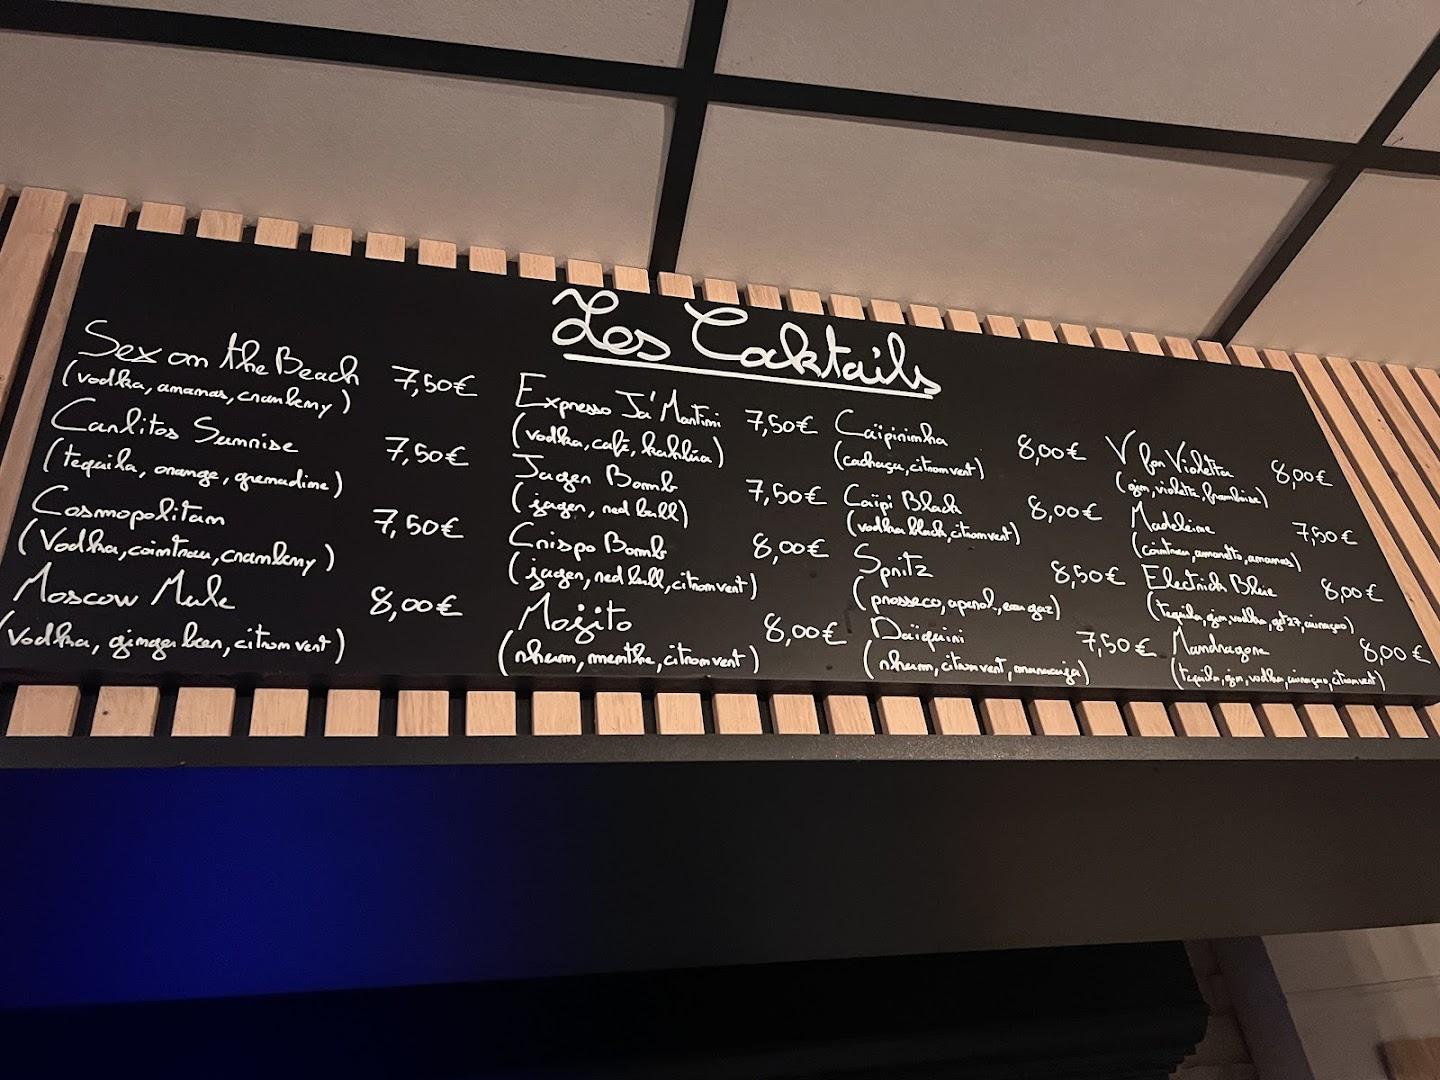 Les Cocktails
Sex on the Beach 7,50€
(vodka, ananas, cranberry)
Carlitos Sunrise 7,50€
(tequila, orange, grenadine)
Cosmopolitan 7,50€
(Vodka, cointreau, cranberry)
Moscow Mule 8,00€
(vodka, ginger beer, citron vert)
Expresso Ja'Martini 7,50€
(vodka, café, kahlúa)
Jager Bomb 7,50€
(jager, red bull)
Crispo Bomb 8,00€
(jager, red bull, citron vert)
Mojito 8,00€
(rhum, menthe, citron vert)
Caïpirinha 8,00€
(cachaça, citron vert)
Caïpi Black 8,00€
(vodka black, citron vert)
Spritz 8,50€
(prosseco, aperol, eau gaz)
Daïquiri 7,50€
(rhum, citron vert, maracuja)
V for Violetta 8,00€
(gin, violette, framboise)
Madeleine 7,50€
(cointreau, amaretto, ananas)
Electrick Blue 8,00€
(tequila, gin, vodka, get27, curaçao)
Mandragore 8,00€
(tequila, gin, vodka, curaçao, citron vert)